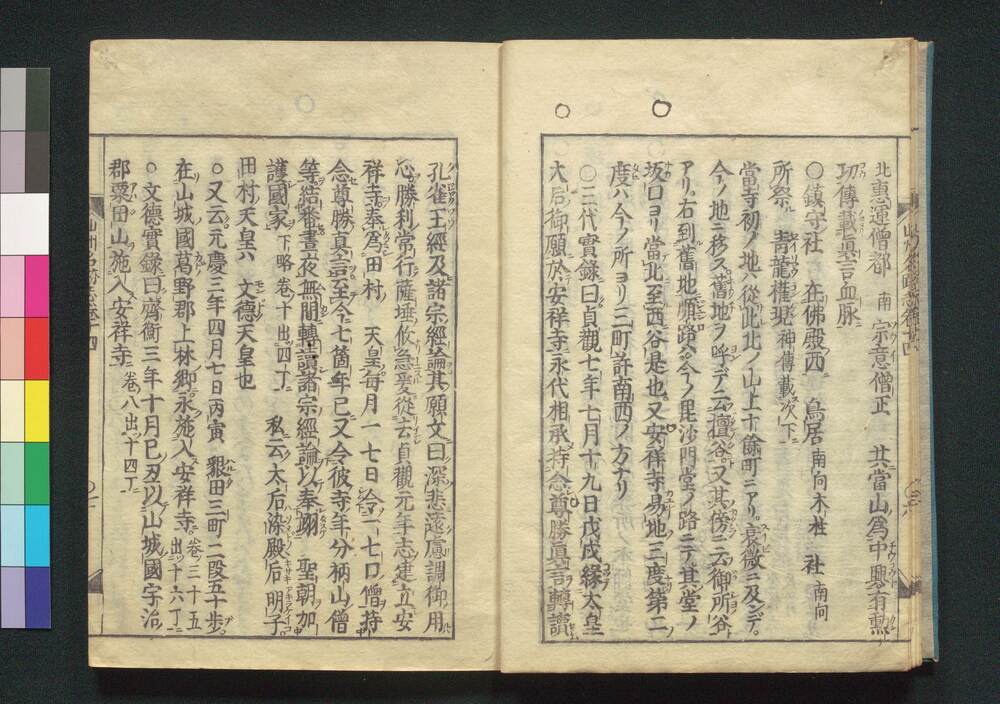 北 惠運僧都 南 宗意僧正 共當山爲中興有勲
功傳載眞言血脉
○鎮守社 在佛殿西 鳥居南向木柱 社南向
所祭 青龍権現神傳載次下
當寺初ノ地ハ從此北ノ山上十餘町ニアリ衰微ニ及ンデ
今ノ地ニ移ス舊地ヲ呼デ云檀谷又其傍ニ云御所谷
アリ右到舊地順路今ノ毘沙門堂ノ路ニテ其堂ノ
坂口ヨリ當北至西谷是也又安祥寺易地三度第二
度ハ今ノ所ヨリ三町許南西ノ方ナリ
○三代實錄曰貞觀七年七月十九日戊戌縁太皇
大后御願於安祥寺永代相承持念尊勝眞言轉讀
孔雀王經及諸宗經論其願文曰深悲遠慮調御用
心勝利常行薩埵攸急爰從去貞觀元年志建立安
祥寺奉爲田村 天皇每月一七日令一七口僧持
念尊勝真言至今七箇年已又令彼寺年分柄山僧
等結番晝夜無間轉讀諸宗經論以奉翊 聖朝加
護國家下略卷十出四丁 私云太后染殿后明子
田村天皇六 文德天皇也
○又云元慶三年四月七日丙寅 墾田三町二段五十步
在山城國葛野郡上林鄉永施入安祥寺卷三十五出十六丁
○文德實錄曰齊衡三年十月己丑以山城國宇治
郡粟田山施入安祥寺卷八出十四丁